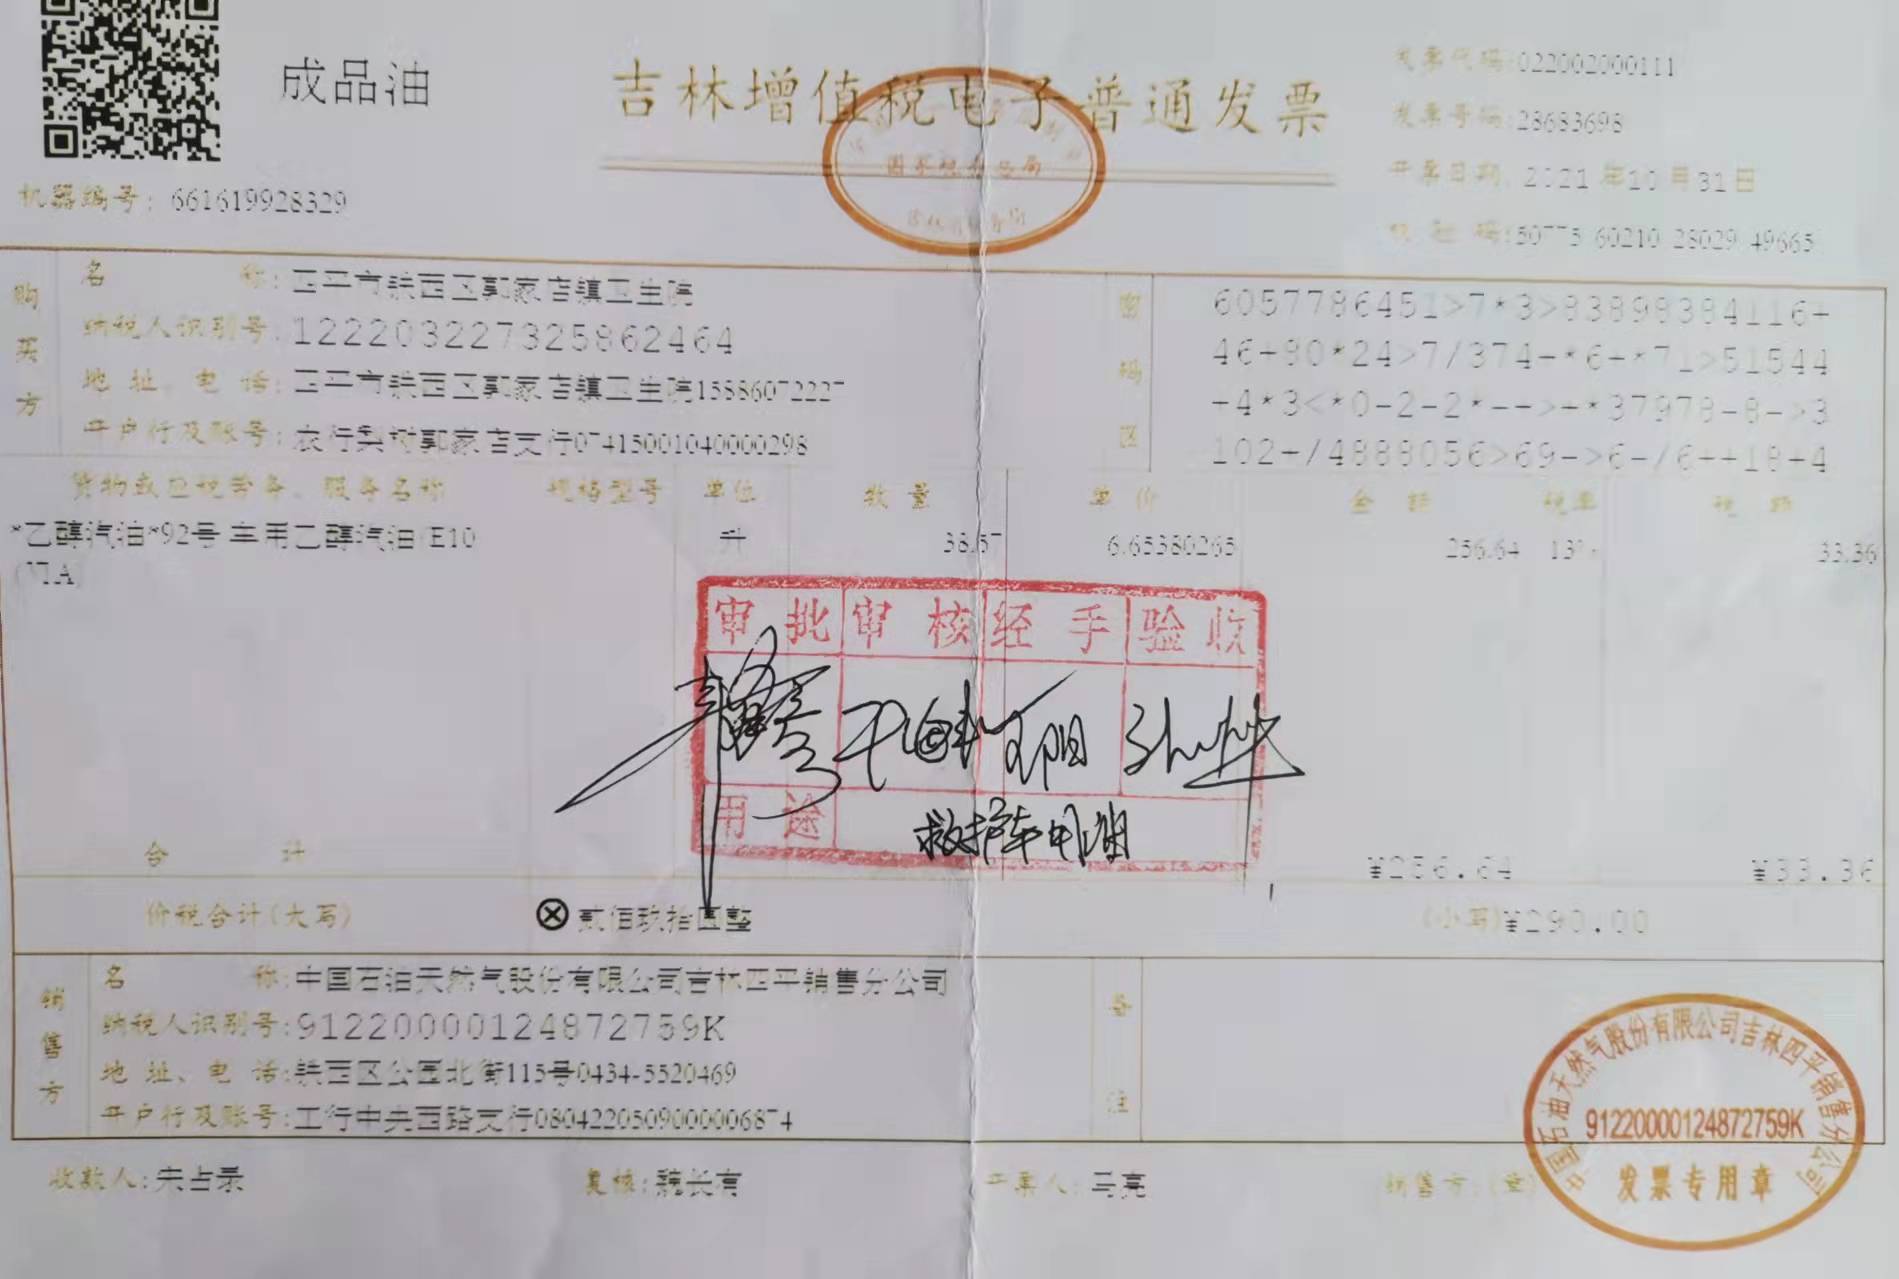 成品油
吉林增值税电子普通发票
发票代码:022002000111
发票号码:28683698
开票日期:2021年10月31日
校验码:50775 60210 28029 49665
机器编号:661619928329
国家税务总局
购买方
名称:四平市铁西区郭家店镇卫生院
纳税人识别号:122203227325862464
地址、电话:四平市铁西区郭家店镇卫生院15886072227
开户行及账号:农行梨树郭家店支行07415001040000298
密码区
6057786451>7*3>83898384116+
货物或应税劳务、服务名称 规格型号 单位 数量 单价 金额 税率 税额
*乙醇汽油*92号 车用乙醇汽油(E10) 升 38.57 6.65380265 256.64 13% 33.36
(VIA)
审批 审核 经手 验收
用途 救护车用油
合计 ¥256.64 ¥33.36
价税合计(大写) ⊗贰佰玖拾圆整 (小写)¥290.00
销售方
名称:中国石油天然气股份有限公司吉林四平销售分公司
纳税人识别号:91220000124872759K
地址、电话:铁西区公园北街115号0434-5520469
开户行及账号:工行中央西路支行0804220509000006874
备注
收款人:宋占录 复核:魏长有 开票人:马亮 销售方:(章)
中国石油天然气股份有限公司吉林四平销售分公司
91220000124872759K
发票专用章